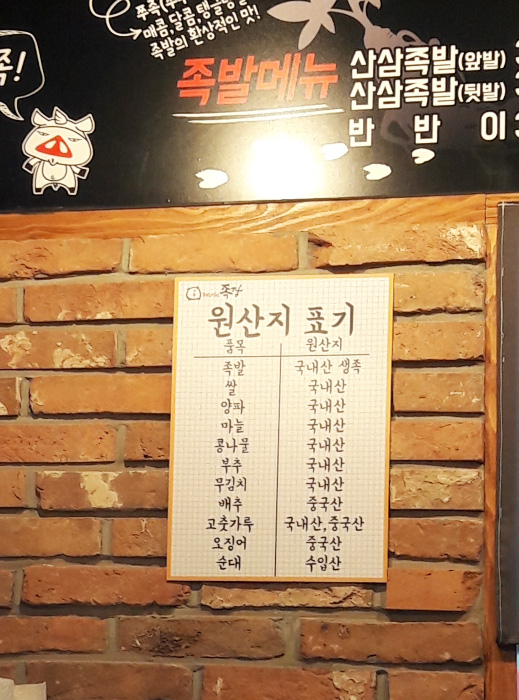 매콤,달콤,탱
족발의 환상적인 맛!
족!
족발메뉴
산삼족발(앞발)
산삼족발(뒷발)
반 반 이
족장
원산지 표기
품목 원산지
족발 국내산 생족
쌀 국내산
양파 국내산
마늘 국내산
콩나물 국내산
부추 국내산
무김치 국내산
배추 중국산
고춧가루 국내산,중국산
오징어 중국산
순대 수입산